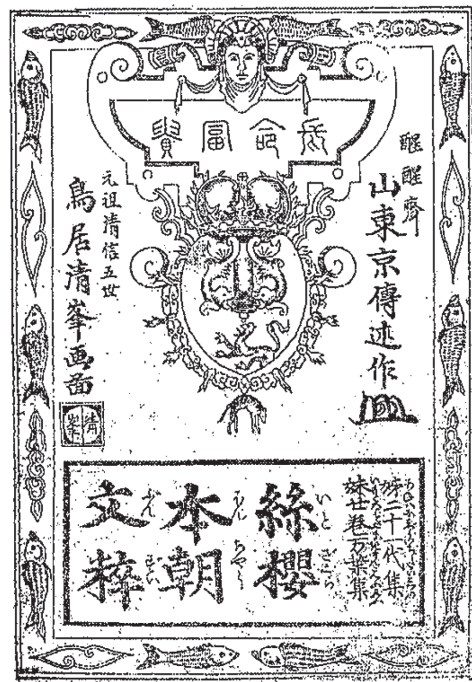 長命富貴
醒醒齋
山東京傳述作
元祖清信五世
鳥居清峯画面
清峯
姉二十一代集
妹廿巻万葉集
絲櫻
本朝
文粋